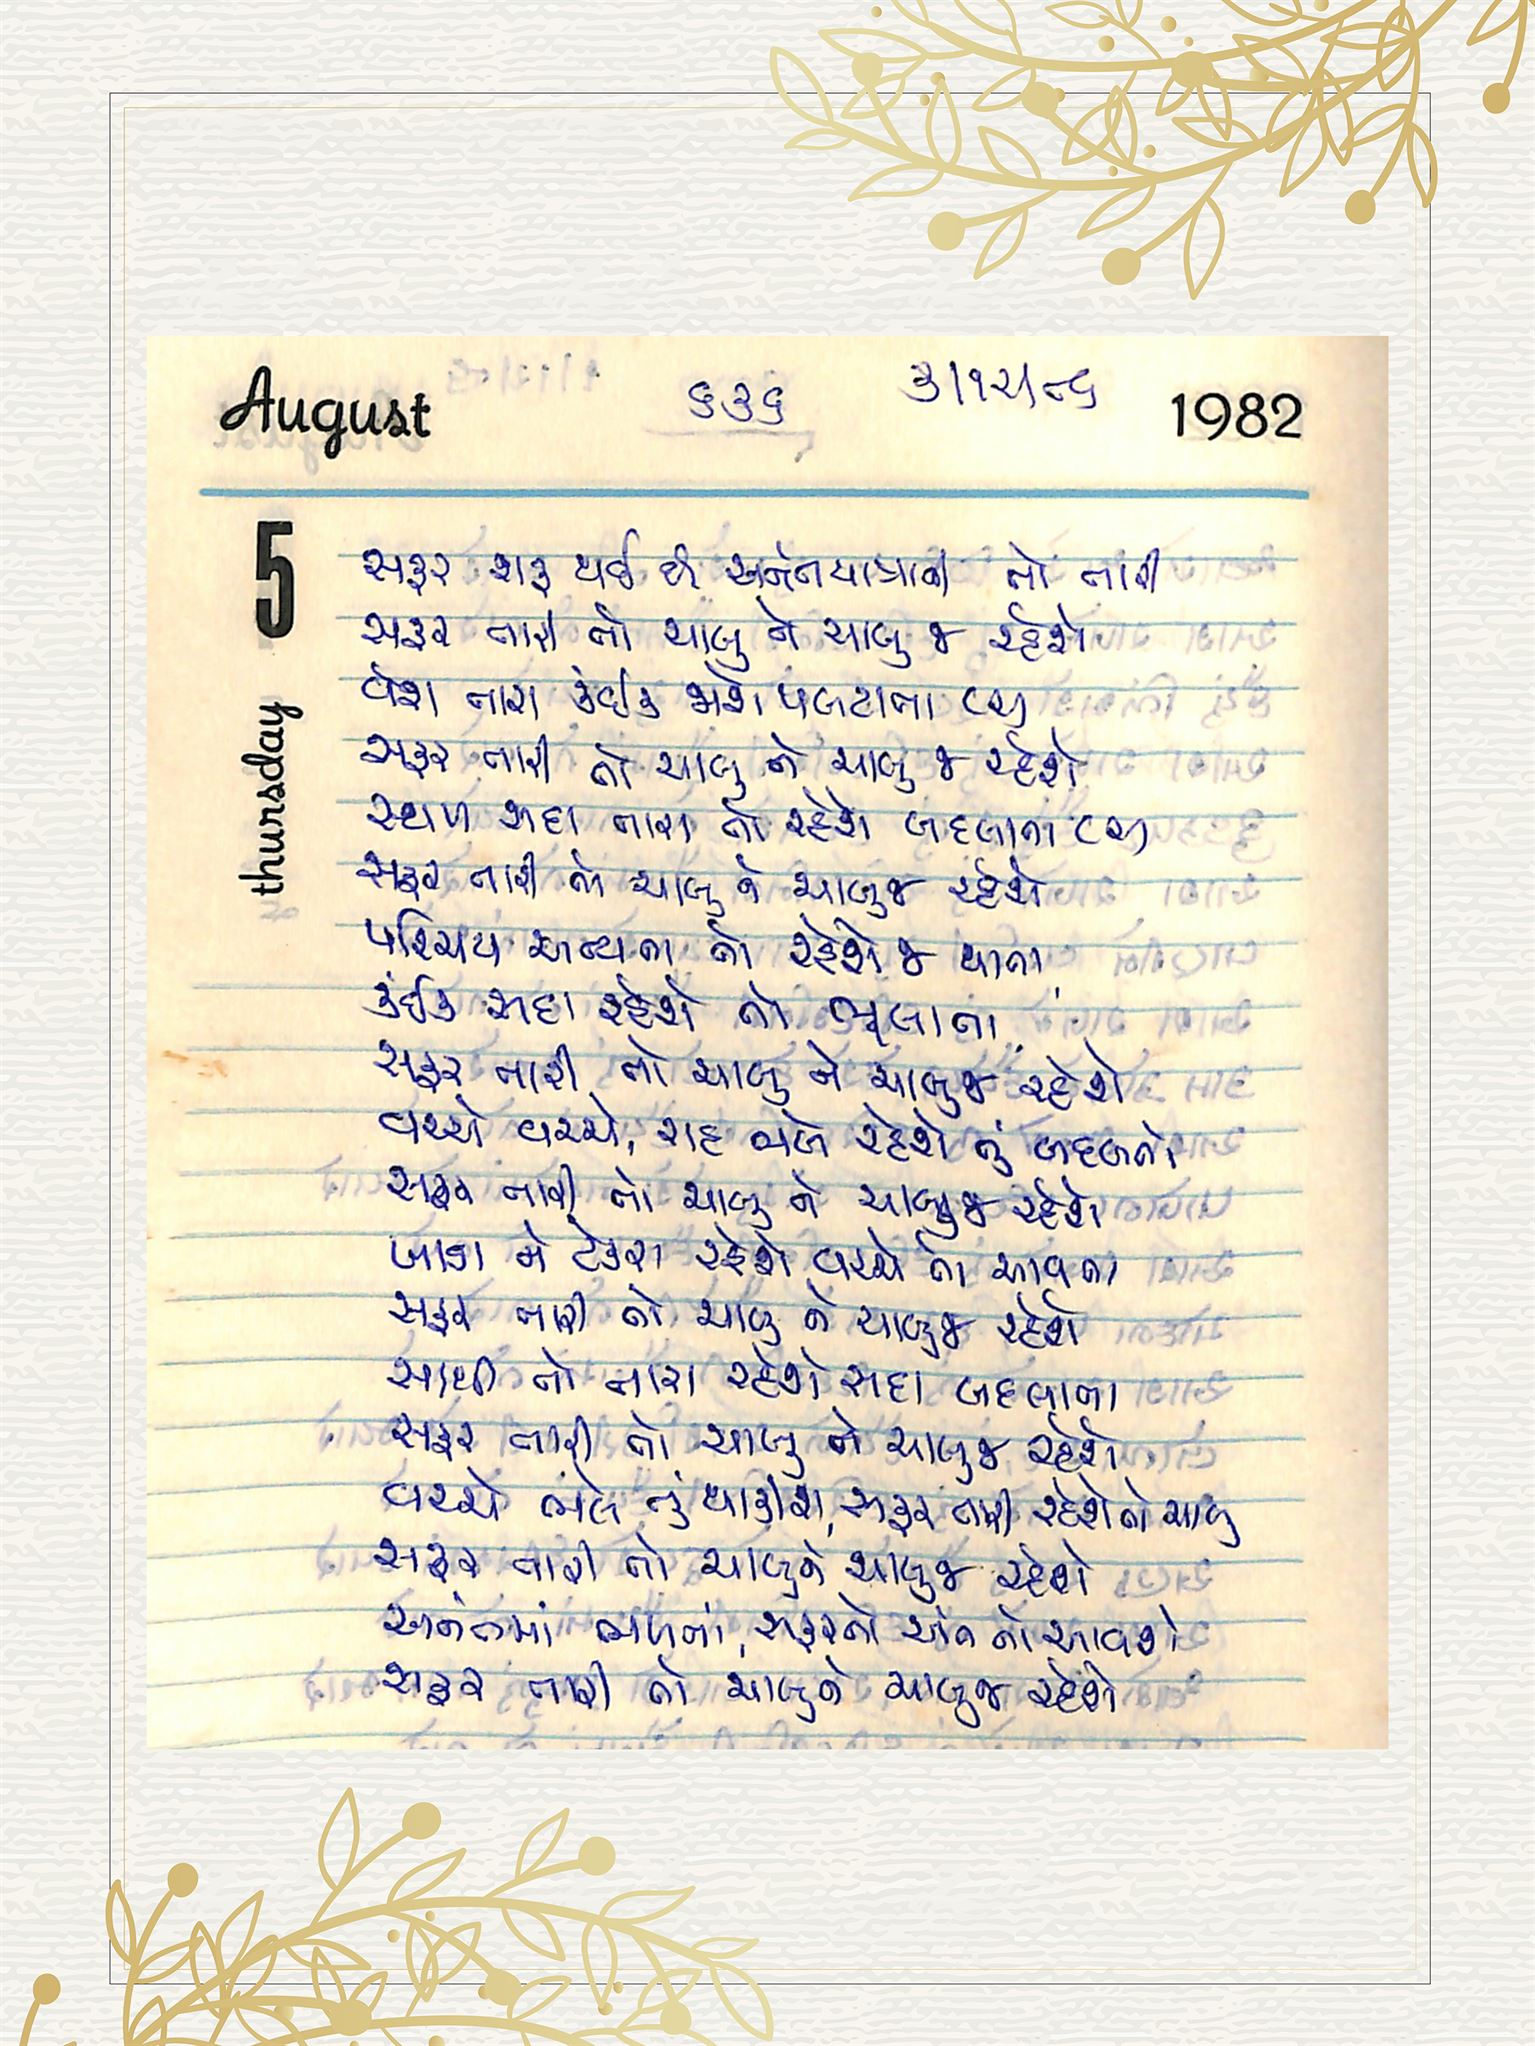 August ૬૩૬ ૩/૧૨/૮૬ 1982
5 thursday
સફર શરૂ થઈ છે અનંતયાત્રાની તો તારી
સફર તારી તો ચાલુ ને ચાલુ જ રહેશે
વેશ તારા કંઈક જાશે પલટાતા (૨)
સફર તારી તો ચાલુ ને ચાલુ જ રહેશે
સ્થળ સદા તારા તો રહેશે બદલાતા (૨)
સફર તારી તો ચાલુ ને ચાલુજ રહેશે
પરિચય અન્યના તો રહેશે જ થાતા
કંઈક સદા રહેશે તો ભૂલાતા
સફર તારી તો ચાલુ ને ચાલુજ રહેશે
વચ્ચે વચ્ચે, રાહ ભલે રહેશે તું બદલતો
સફર તારી તો ચાલુ ને ચાલુજ રહેશે
ખાડા ને ટેકરા રહેશે વચ્ચે તો આવતા
સફર તારી તો ચાલુ ને ચાલુજ રહેશે
સાથી તો તારા રહેશે સદા બદલાતા
સફર તારી તો ચાલુ ને ચાલુજ રહેશે
વચ્ચે ભલે તું થાકીશ, સફર તારી રહેશે તો ચાલુ
સફર તારી તો ચાલુને ચાલુજ રહેશે
અનંતમાં ભળતાં, સફરનો અંત તો આવશે
સફર તારી તો ચાલુને ચાલુજ રહેશે